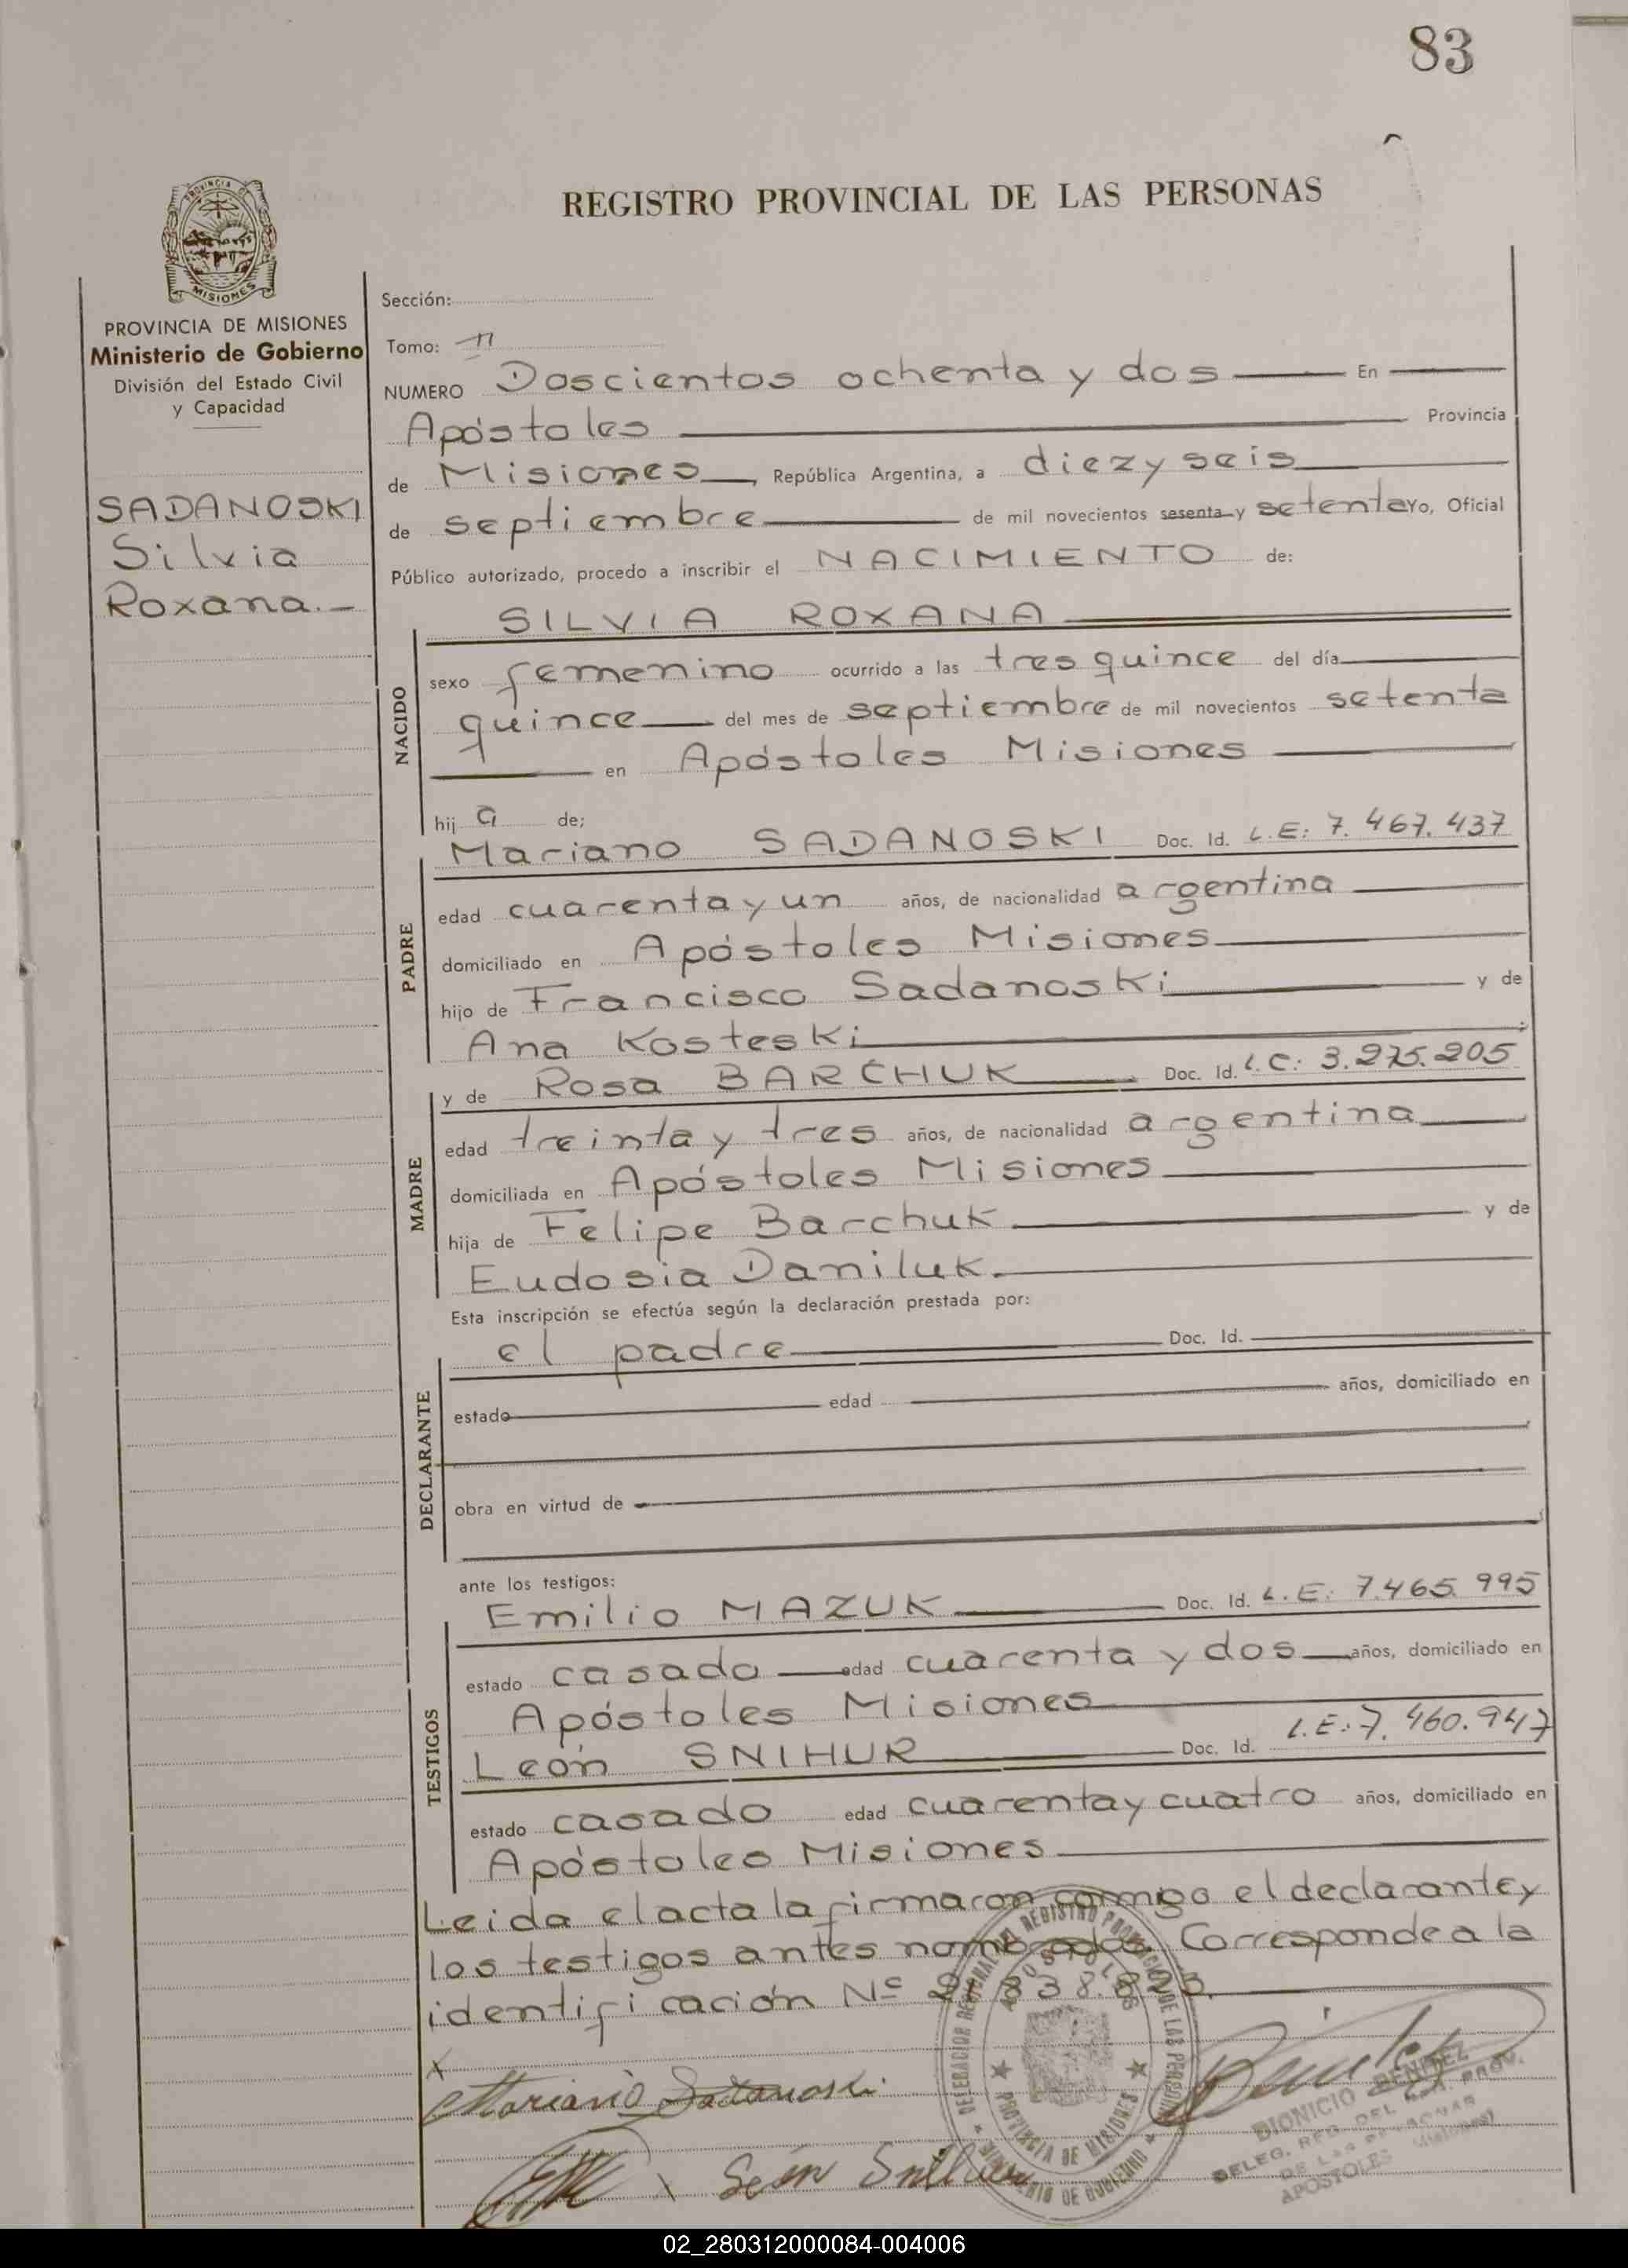 83
REGISTRO PROVINCIAL DE LAS PERSONAS
PROVINCIA DE
MISIONES
PROVINCIA DE MISIONES
Ministerio de Gobierno
División del Estado Civil
y Capacidad
SADANOSKI
Silvia
Roxana.-
Sección:
Tomo: II
NUMERO Doscientos ochenta y dos En
Apóstoles Provincia
de Misiones, República Argentina, a diezyseis
de septiembre de mil novecientos sesenta y setenta Yo, Oficial
Público autorizado, procedo a inscribir el NACIMIENTO de:
NACIDO
SILVIA ROXANA
sexo femenino ocurrido a las tres quince del día
quince del mes de septiembre de mil novecientos setenta
en Apóstoles Misiones
hij a de;
PADRE
Mariano SADANOSKI Doc. Id. L.E: 7.467.437
edad cuarenta y un años, de nacionalidad argentina
domiciliado en Apóstoles Misiones
hijo de Francisco Sadanoski y de
Ana Kosteski
MADRE
y de Rosa BARCHUK Doc. Id. L.C: 3.275.205
edad treinta y tres años, de nacionalidad argentina
domiciliada en Apóstoles Misiones
hija de Felipe Barchuk y de
Eudosia Daniluk.
Esta inscripción se efectúa según la declaración prestada por:
DECLARANTE
el padre Doc. Id.
estado edad años, domiciliado en
obra en virtud de
ante los testigos:
TESTIGOS
Emilio MAZUK Doc. Id. L.E: 7.465.995
estado casado edad cuarenta y dos años, domiciliado en
Apóstoles Misiones
León SNIHUR Doc. Id. L.E: 7.460.947
estado casado edad cuarenta y cuatro años, domiciliado en
Apóstoles Misiones
Leida el acta la firmaron conmigo el declarante y
los testigos antes nombrados. Corresponde a la
identificación Nº
x
Mariano Sadanoski
x León Snihur
REGISTRO PROVINCIAL DE LAS PERSONAS
PROVINCIA DE MISIONES
MINISTERIO DE GOBIERNO
DIONICIO BENITEZ
DELEG. REG. DEL REG. PROV.
DE LAS PERSONAS
APOSTOLES (Misiones)
02_280312000084-004006